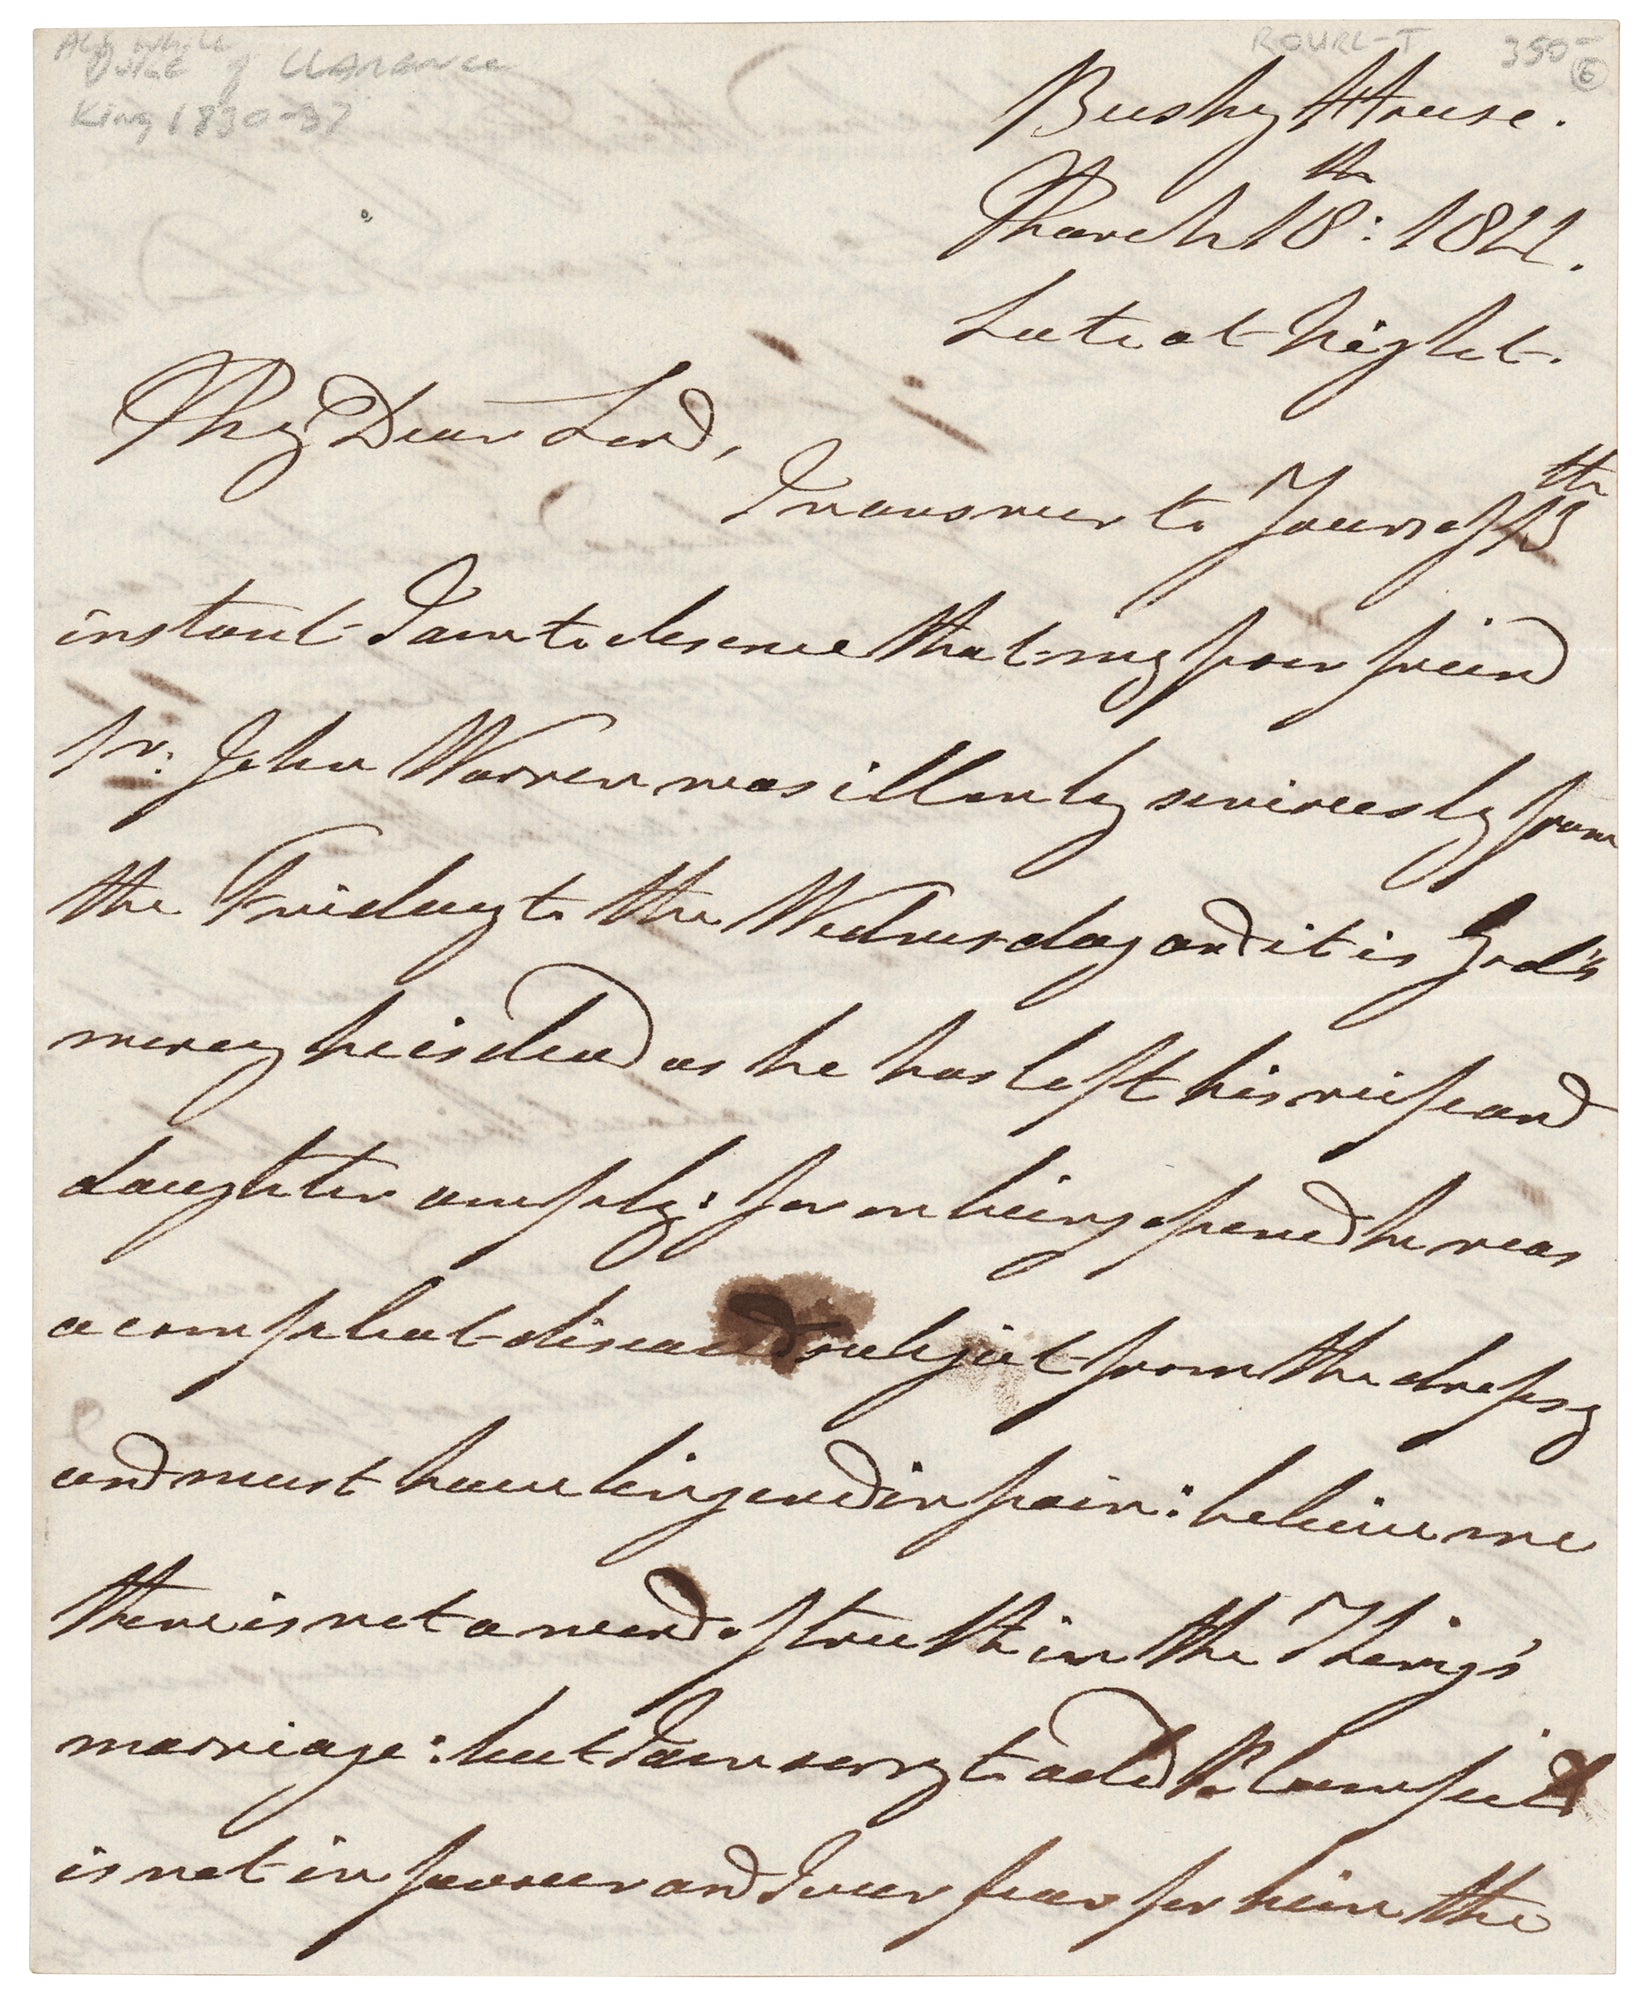 ALS while
Duke of Clarence
King 1830-37
ROURL-T
350-
6
Bushy House.
March 18th: 1822.
Late at Night.
My Dear Lord,
In answer to Yours of 13th
instant I am to observe that my poor friend
Sr: John Warren was ill only seriously from
the Friday to the Wednesday and it is God's
mercy he is dead as he has left his wife and
daughter amply: for on being opened he was
a compleat diseased subject from the dropsy
and must have lingered in pain: believe me
there is not a word of truth in the King's
marriage: but I am sorry to add
is not in favour and I ever fear for him the